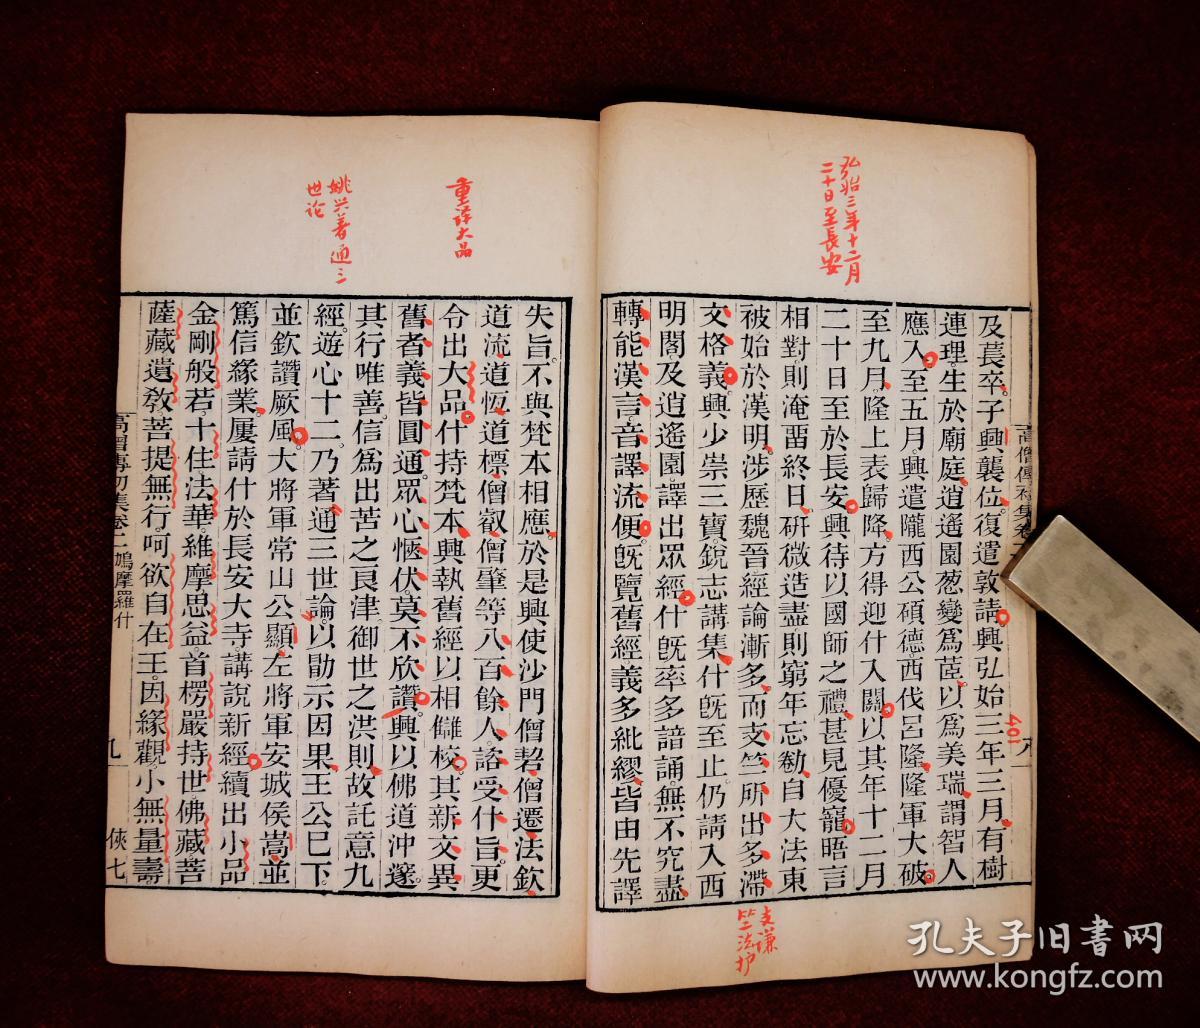 弘始三年十二月
二十日至長安
及萇卒子興襲位復遣敦請興弘始三年三月有樹
連理生於廟庭逍遙園葱變爲茝以爲美瑞謂智人
應入至五月興遣隴西公碩德西伐呂隆隆軍大破
至九月隆上表歸降方得迎什入關以其年十二月
二十日至於長安興待以國師之禮甚見優寵晤言
相對則淹留終日研微造盡則窮年忘勌自大法東
被始於漢明涉歷魏晉經論漸多而支竺所出多滯
文格義興少崇三寶銳志講集什旣至止仍請入西
明閣及逍遙園譯出眾經什旣率多諳誦無不究盡
轉能漢言音譯流便旣覽舊經義多紕繆皆由先譯
401
支谦
竺法护
高僧傳初集卷二
八
重译大品
姚兴著通三
世论
失旨不與梵本相應於是興使沙門僧䂮僧遷法欽
道流道恆道標僧叡僧肇等八百餘人諮受什旨更
令出大品什持梵本興執舊經以相讎校其新文異
舊者義皆圓通眾心愜伏莫不欣讚興以佛道沖邃
其行唯善信爲出苦之良津御世之洪則故託意九
經遊心十二乃著通三世論以勖示因果王公巳下
並欽讚厥風大將軍常山公顯左將軍安城侯嵩並
篤信緣業屢請什於長安大寺講說新經續出小品
金剛般若十住法華維摩思益首楞嚴持世佛藏菩
薩藏遺敎菩提無行呵欲自在王因緣觀小無量壽
高僧傳初集卷二 鳩摩羅什
九
俠七
孔夫子旧書网
www.kongfz.com